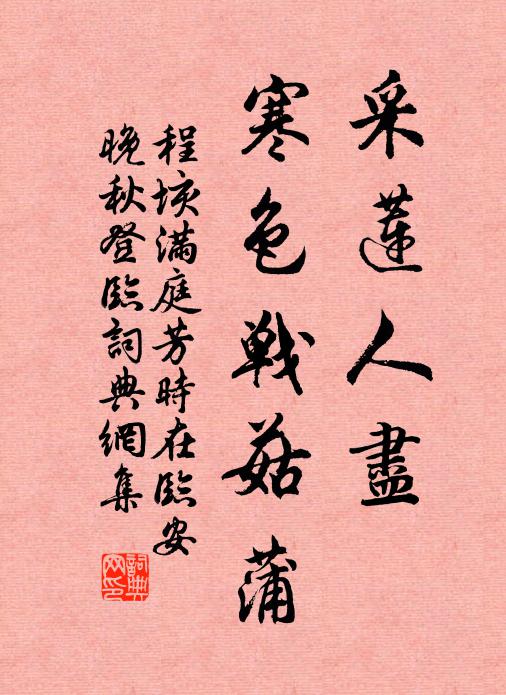 采蓮人盡
寒色戰菇蒲
程垓滿庭芳時在臨安
晚秋登臨詞典網集
詞典網印